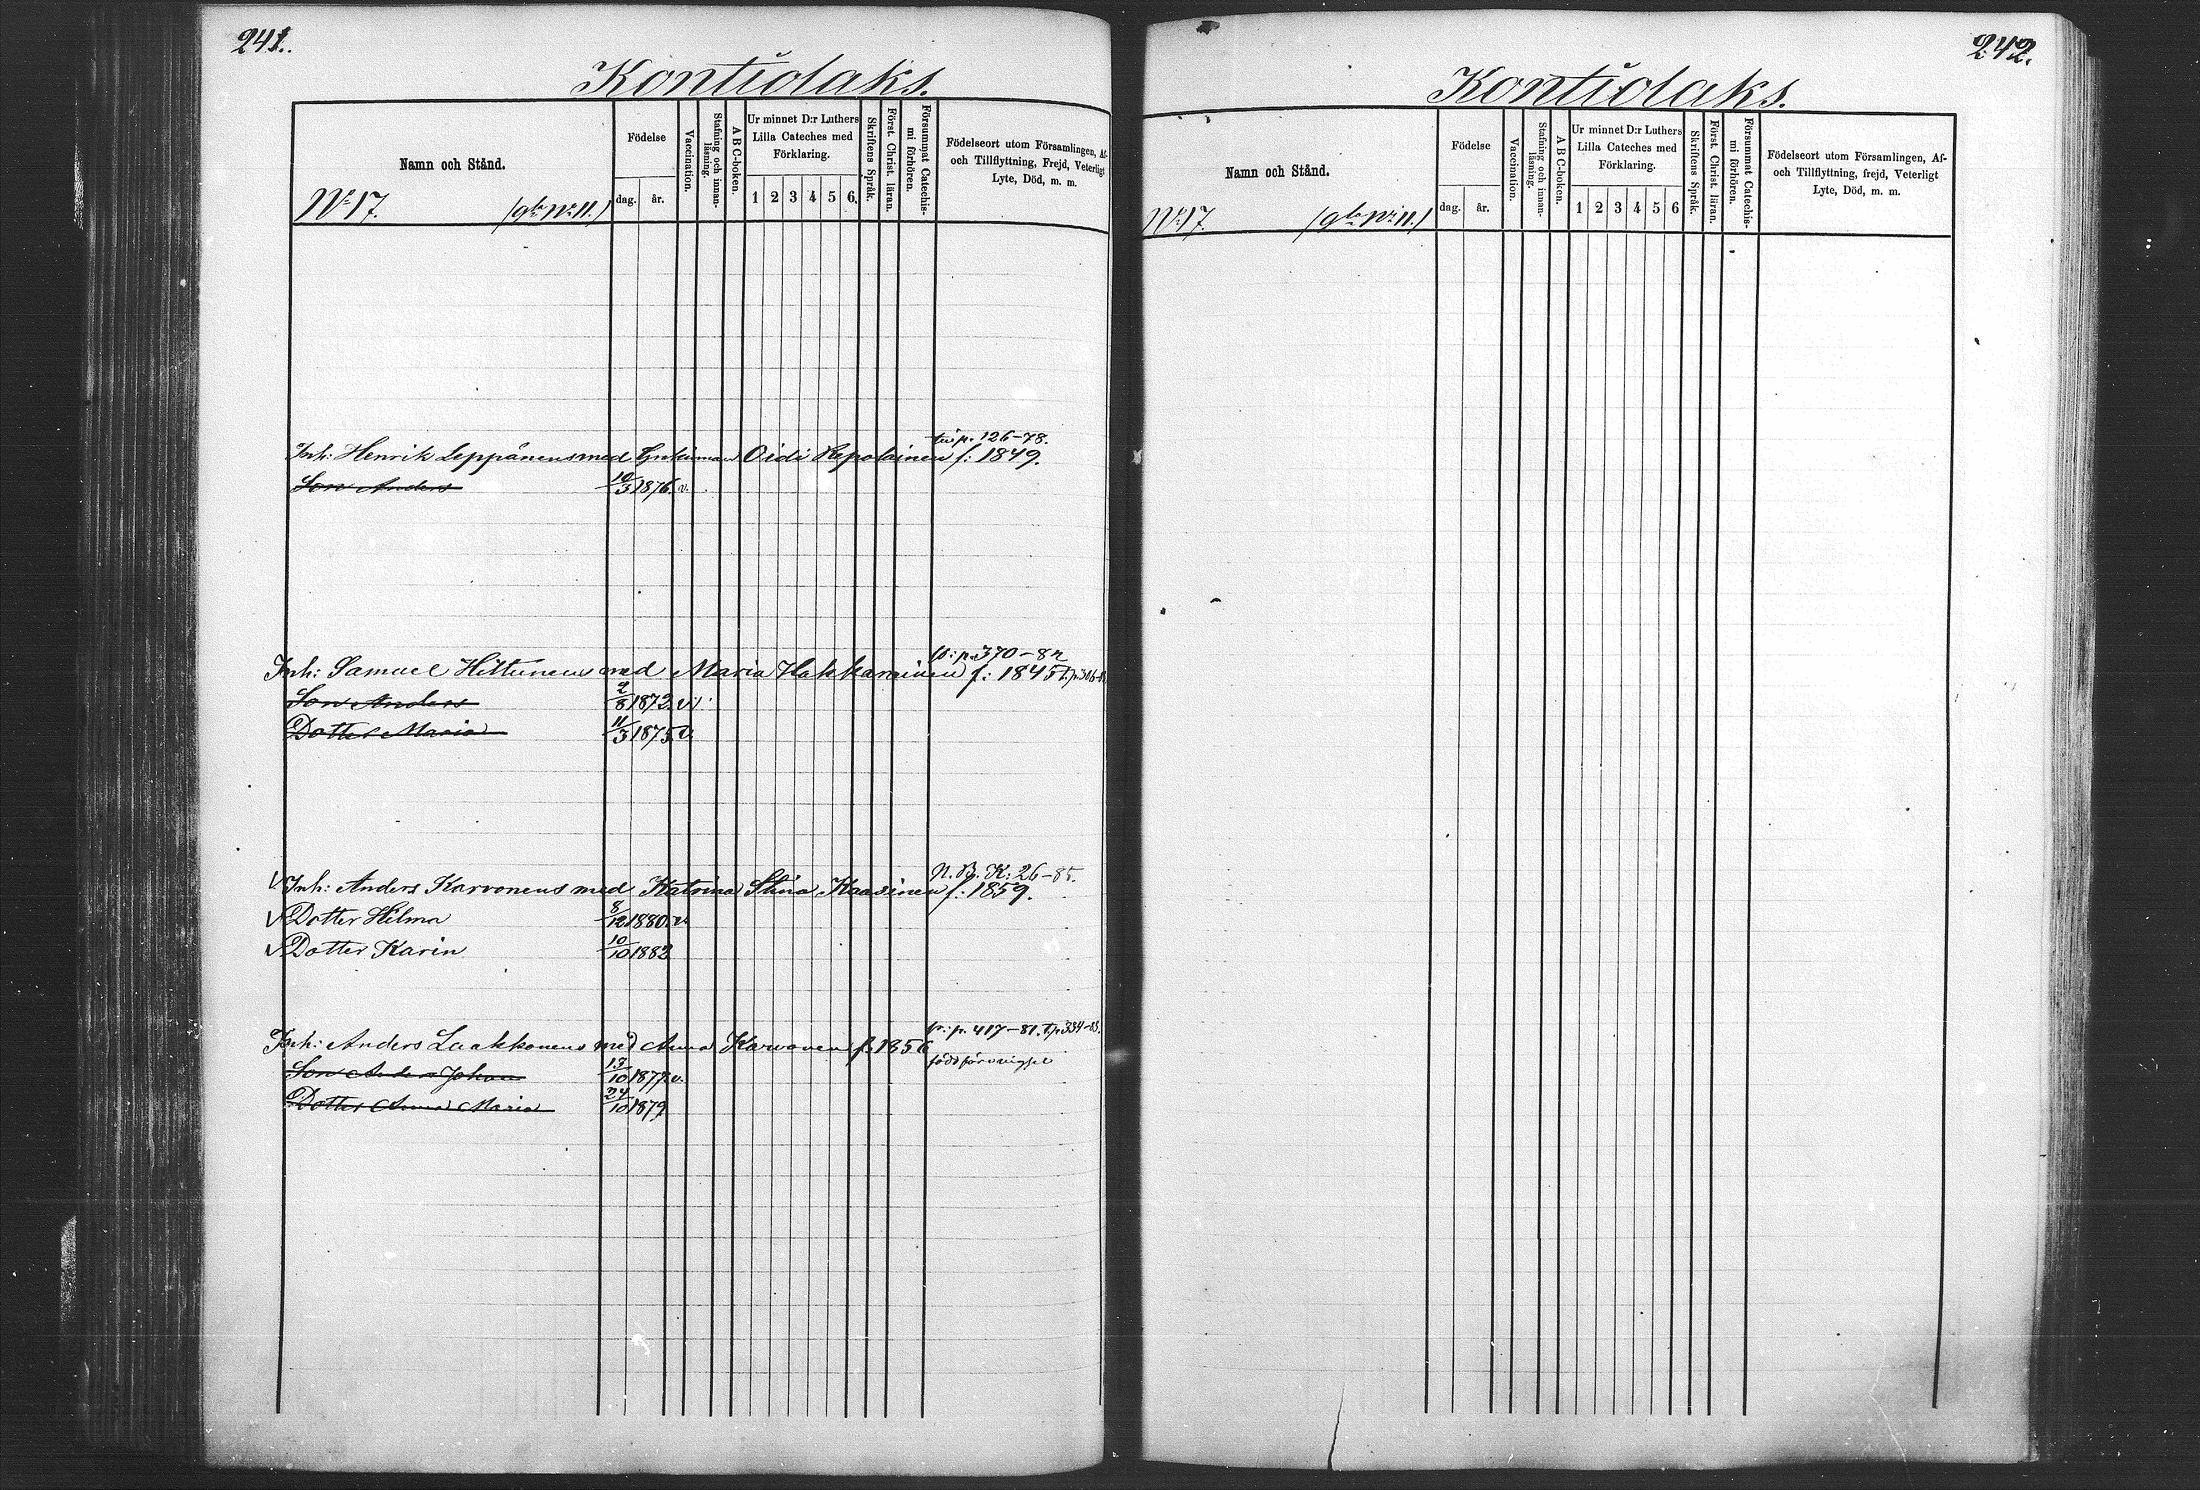 241.
Kontiolaks.
Namn och Stånd.
Födelse
dag. år.
Vaccination.
Stafning och innanläsning.
ABC-boken.
Ur minnet D:r Luthers
Lilla Cateches med
Förklaring.
1 2 3 4 5 6.
Skriftens Språk.
Först. Christ. läran.
Försummat Catechismi förhören.
Födelseort utom Församlingen, Af-
och Tillflyttning, Frejd, Veterligt
Lyte, Död, m. m.
No 17. (gla No 11.)
p. 126-78.
Inh: Henrik Leppänens med Oidi Repolainen f: 1849.
Son Anders 10/3 1876. v.
p. 370-82
Inh: Samuel Hittunens med Maria Hakkarainen f: 1845
Son Anders 2/8 1872. v.
Dotter Maria 11/3 1875. v.
N. B. K: 26-85.
V Inh: Anders Karvonens med Katrina Stina Kaasinen f: 1859.
V Dotter Hilma 8/12 1880. v.
V Dotter Karin 10/10 1882
p: p. 417-81. T.p 334-83.
Inh: Anders Laakkonens med Anna Karvonen f: 1856
född före vigsel
Son Anders Johan 13/10 1877. v.
Dotter Anna Maria 24/10 1879
242.
Kontiolaks.
Namn och Stånd.
Födelse
dag. år.
Vaccination.
Stafning och innanläsning.
ABC-boken.
Ur minnet D:r Luthers
Lilla Cateches med
Förklaring.
1 2 3 4 5 6
Skriftens Språk.
Först. Christ. läran.
Försummat Catechismi förhören.
Födelseort utom Församlingen, Af-
och Tillflyttning, frejd, Veterligt
Lyte, Död, m. m.
No 17. (gla No 11.)